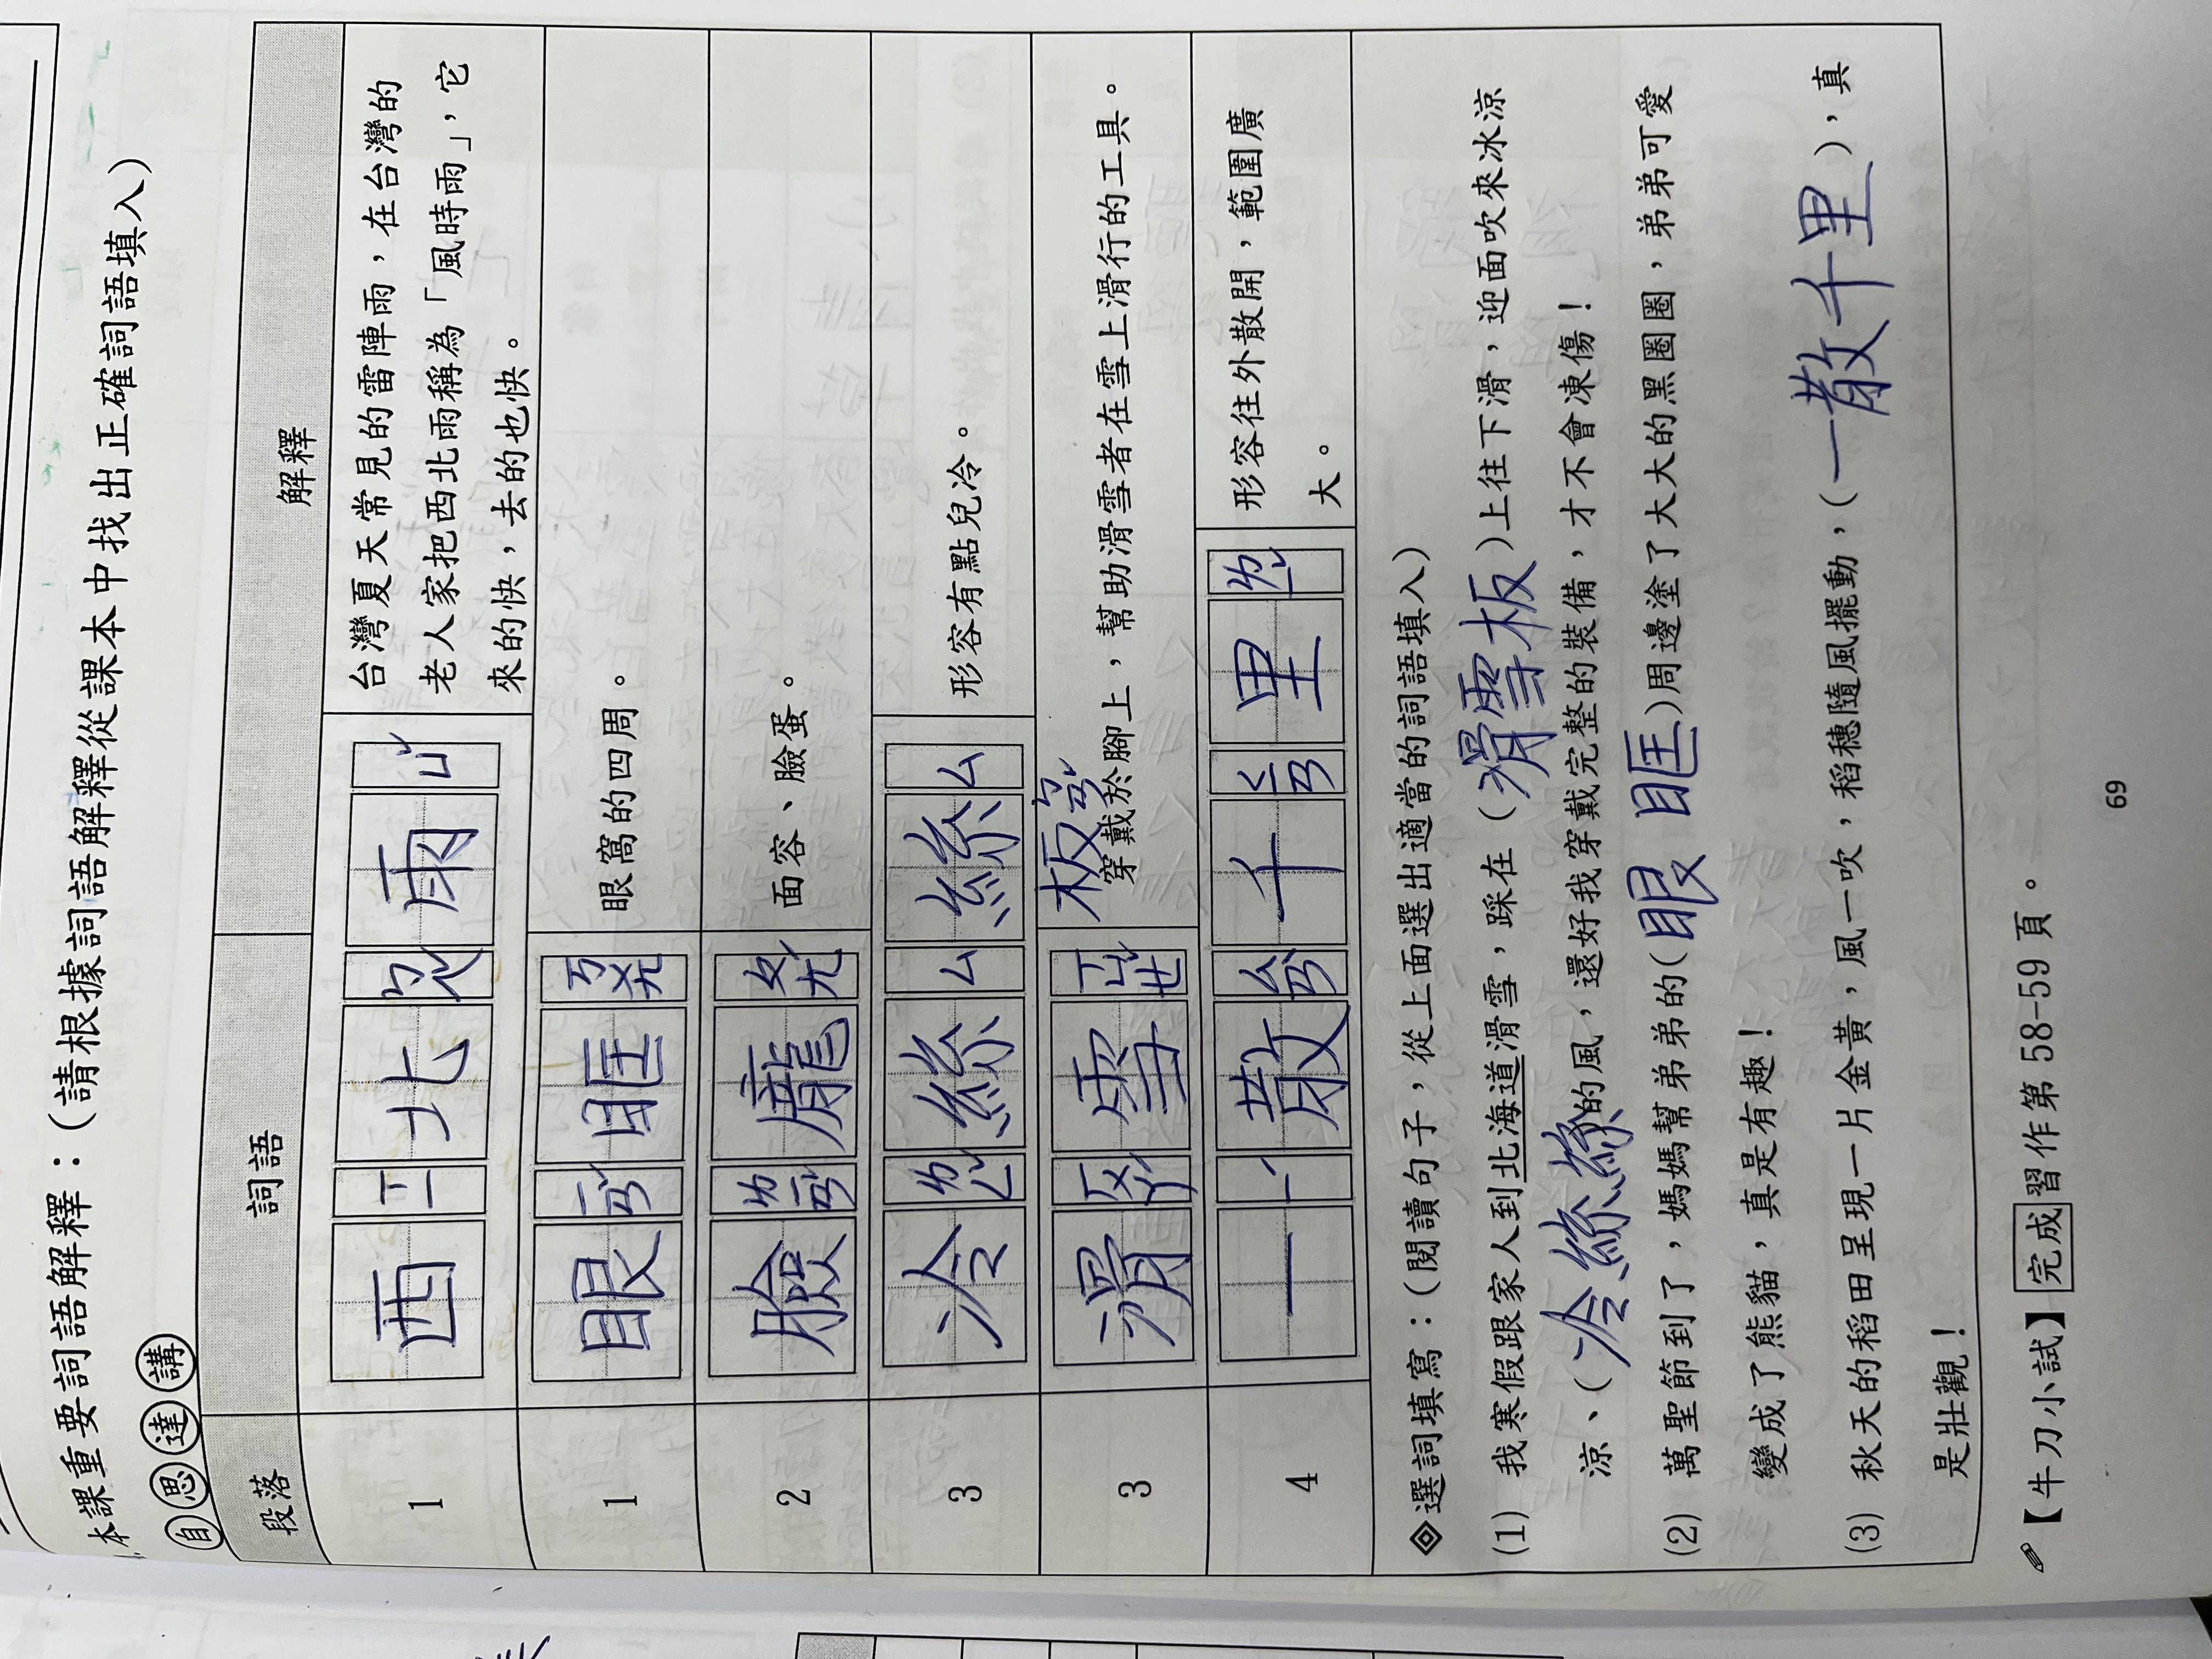 本課重要詞語解釋：（請根據詞語解釋從課本中找出正確詞語填入）
自思達講
段落 詞語 解釋
1 西ㄒㄧ北ㄅㄟˇ雨ㄩˇ 台灣夏天常見的雷陣雨，在台灣的
老人家把西北雨稱為「風時雨」，它
來的快，去的也快。
1 眼ㄧㄢˇ眶ㄎㄨㄤ 眼窩的四周。
2 臉ㄌㄧㄢˇ龐ㄆㄤˊ 面容、臉蛋。
3 冷ㄌㄥˇ絲ㄙ絲ㄙ 形容有點兒冷。
3 滑ㄏㄨㄚˊ雪ㄒㄩㄝˇ板ㄅㄢˇ 穿戴於腳上，幫助滑雪者在雪上滑行的工具。
4 一ㄧˊ散ㄙㄢˋ千ㄑㄧㄢ里ㄌㄧˇ 形容往外散開，範圍廣
大。
◈選詞填寫：（閱讀句子，從上面選出適當的詞語填入）
(1) 我寒假跟家人到北海道滑雪，踩在（滑雪板）上往下滑，迎面吹來冰涼
涼、（冷絲絲的風，還好我穿戴完整的裝備，才不會凍傷！
(2) 萬聖節到了，媽媽幫弟弟的（眼眶）周邊塗了大大的黑圈圈，弟弟可愛
變成了熊貓，真是有趣！
(3) 秋天的稻田呈現一片金黃，風一吹，稻穗隨風擺動，（一散千里），真
是壯觀！
【牛刀小試】完成習作第 58-59 頁。
69